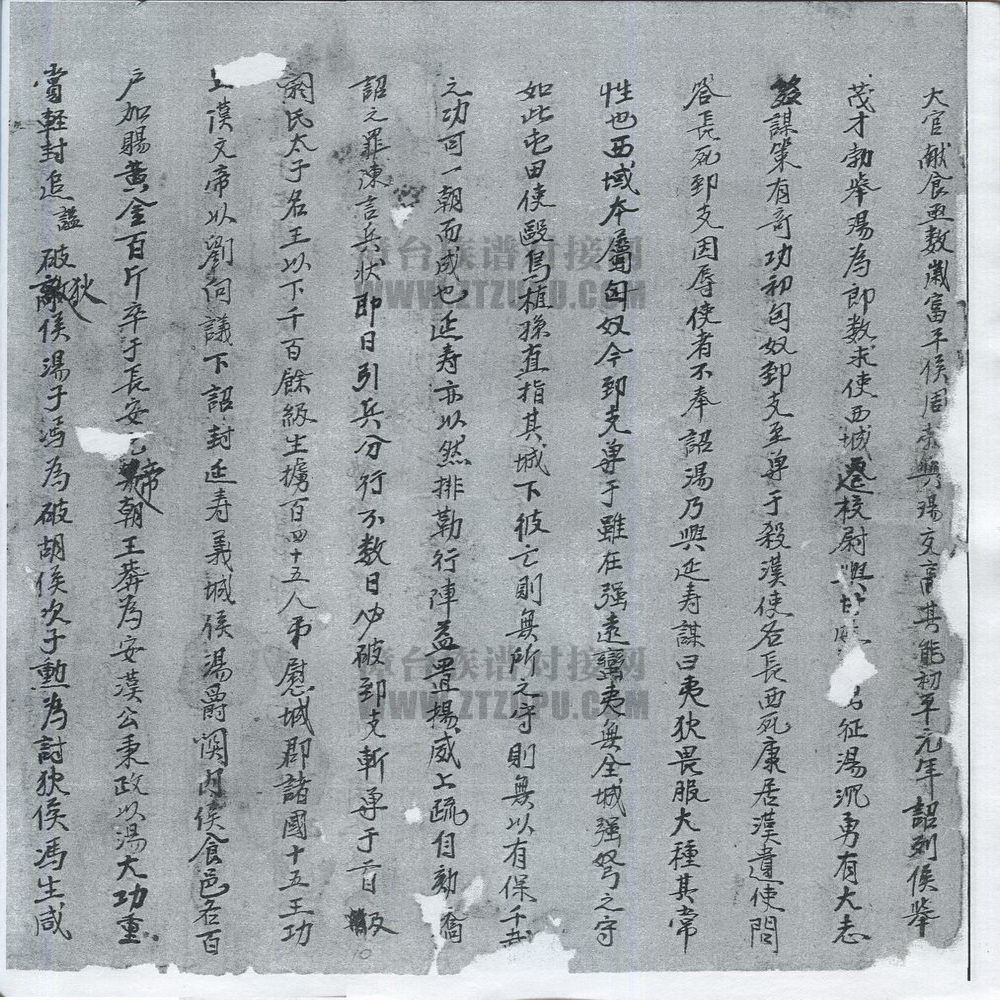 大官献食丞数嵗富平侯周 與湯交高其能初平元年詔列侯舉
茂才勃舉湯為郎数求使西域遷校尉與 征湯沉勇有大志
謀策有奇功初匈奴郅支至单于殺漢使名長西死康居漢遣使問
谷長死郅支因辱使者不奉詔湯乃與延寿謀曰夷狄畏服大種其常
性也西域本屬匈奴今郅支单于雖在强遠蠻夷無全城强弩之守
如此屯田使毆馬植孫直指其城下彼亡則無所之守則無以有保千
之功可一朝而成也延寿亦以然排勒行陣益置揚威上疏自劾矯
詔之罪陳言兵状即日引兵分行不数日必破郅支斬单于首級
閼氏太子名王以下千百餘級生擄百四十五人弔慰城郡諸國十五王功
上漢文帝以劉向議下詔封延寿義城侯湯爵関内侯食邑各百
户加賜黄金百斤卒于長安 帝朝王莽為安漢公秉政以湯大功重
賞軽封追謚破狄侯湯子馮為破胡侯次子勲為討狄侯馮生咸
薹台族谱对接网
WWW.ZTZUPU.COM
薹台族谱对接网
WWW.ZTZUPU.COM